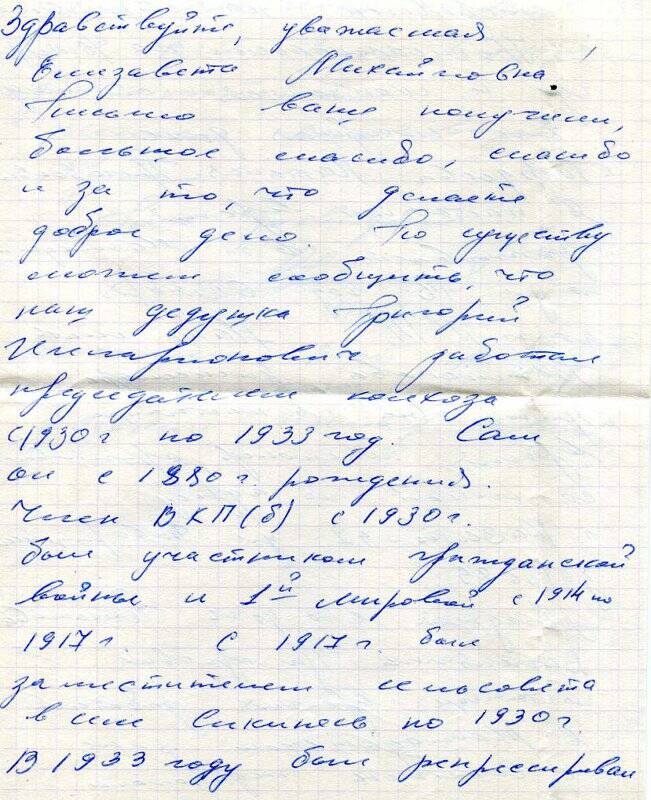 Здравствуйте, уважаемая
Елизавета Михайловна!
Письмо ваше получили,
большое спасибо, спасибо
и за то, что делаете
доброе дело. По существу
можем сообщить, что
наш дедушка Григорий
Илларионович работал
председателем колхоза
с 1930 г по 1933 год. Сам
он с 1880 г. рождения.
Член ВКП(б) с 1930 г.
был участником гражданской
войны и 1й мировой с 1914 по
1917 г. с 1917 г. был
заместителем сельсовета
в селе по 1930 г.
В 1933 году был репрессирован